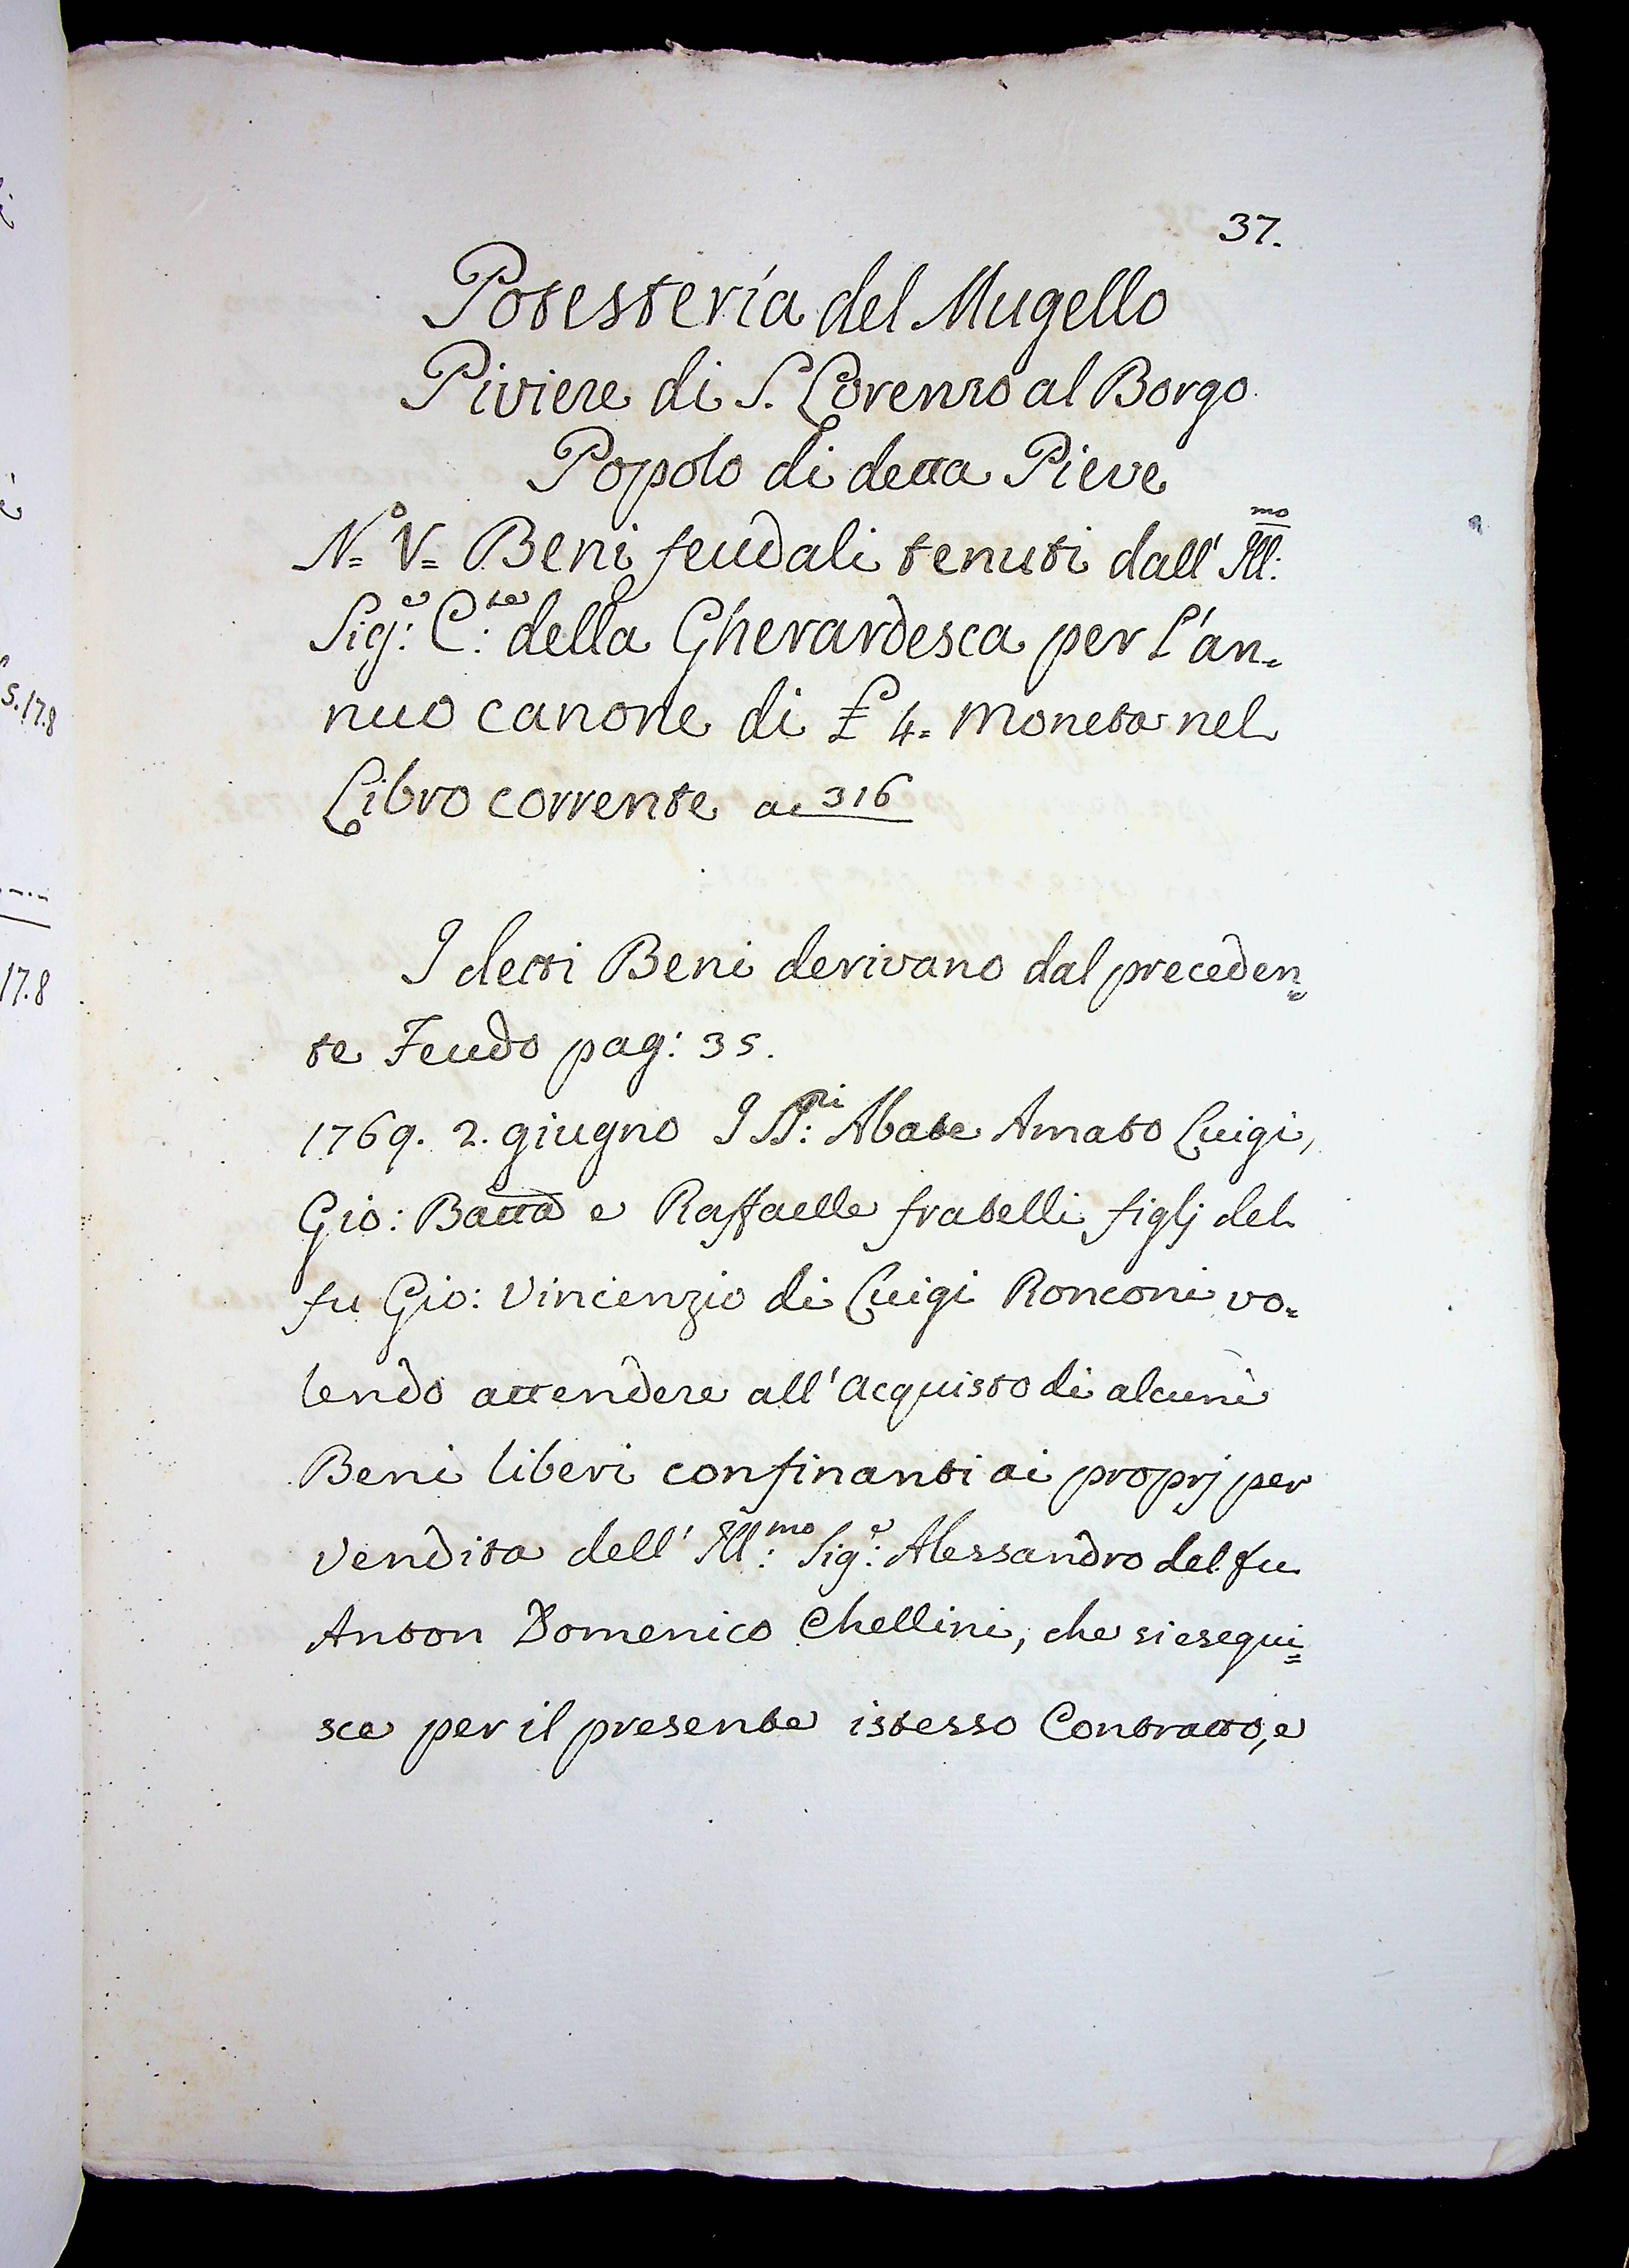 37.
Potesteria del Mugello
Piviere di S. Lorenzo al Borgo
Popolo di detta Pieve
N.° V= Beni feudali tenuti dall' Ill:mo
Sig:e C:te della Gherardesca per l'an=
nuo canone di £ 4= moneta nel
Libro corrente a 316
I detti Beni derivano dal preceden=
te Feudo pag: 35.
1769. 2. giugno I SS:ri Abate Amato Luigi,
Gio: Batta e Raffaelle fratelli figlj del
fu Gio: Vincenzio di Luigi Ronconi vo=
lendo attendere all'acquisto di alcuni
Beni liberi confinanti ai proprj per
vendita dell' Ill:mo Sig:e Alessandro del fu
Anton Domenico Chellini, che si esegui=
sce per il presente istesso Contratto, e
S.17.8
17.8